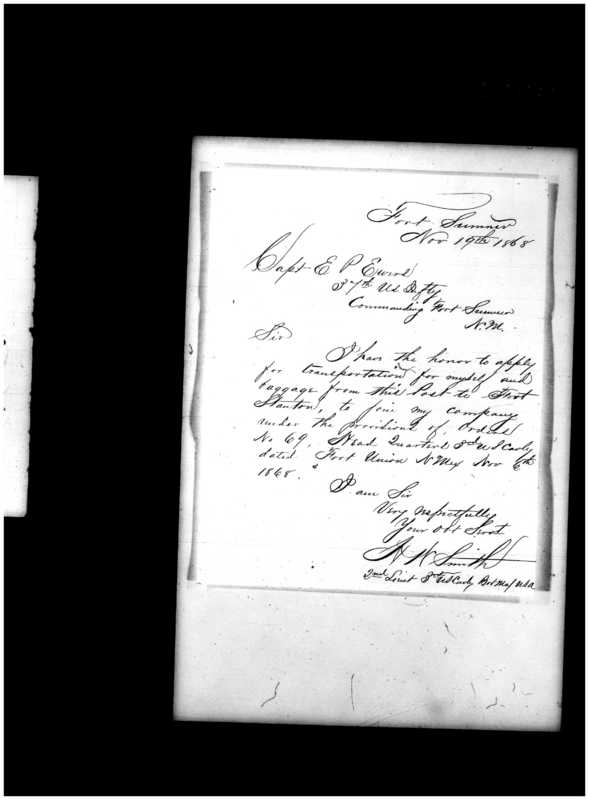 Fort Sumner
Nov 19th 1868
Capt E P Ewers
37th US Infty
Commanding Fort Sumner
N.M.
Sir
I have the honor to apply
for transportation for myself and
baggage from this Post to Fort
Stanton, to join my company
under the provisions of Orders
No 69. Head Quarters 3d U S Cavly
dated Fort Union N Mex Nov 6th
1868.
I am Sir
Very respectfully
Your Obt Servt
H W Smith
2nd Lieut 3d US Cavly Bvt Maj USA